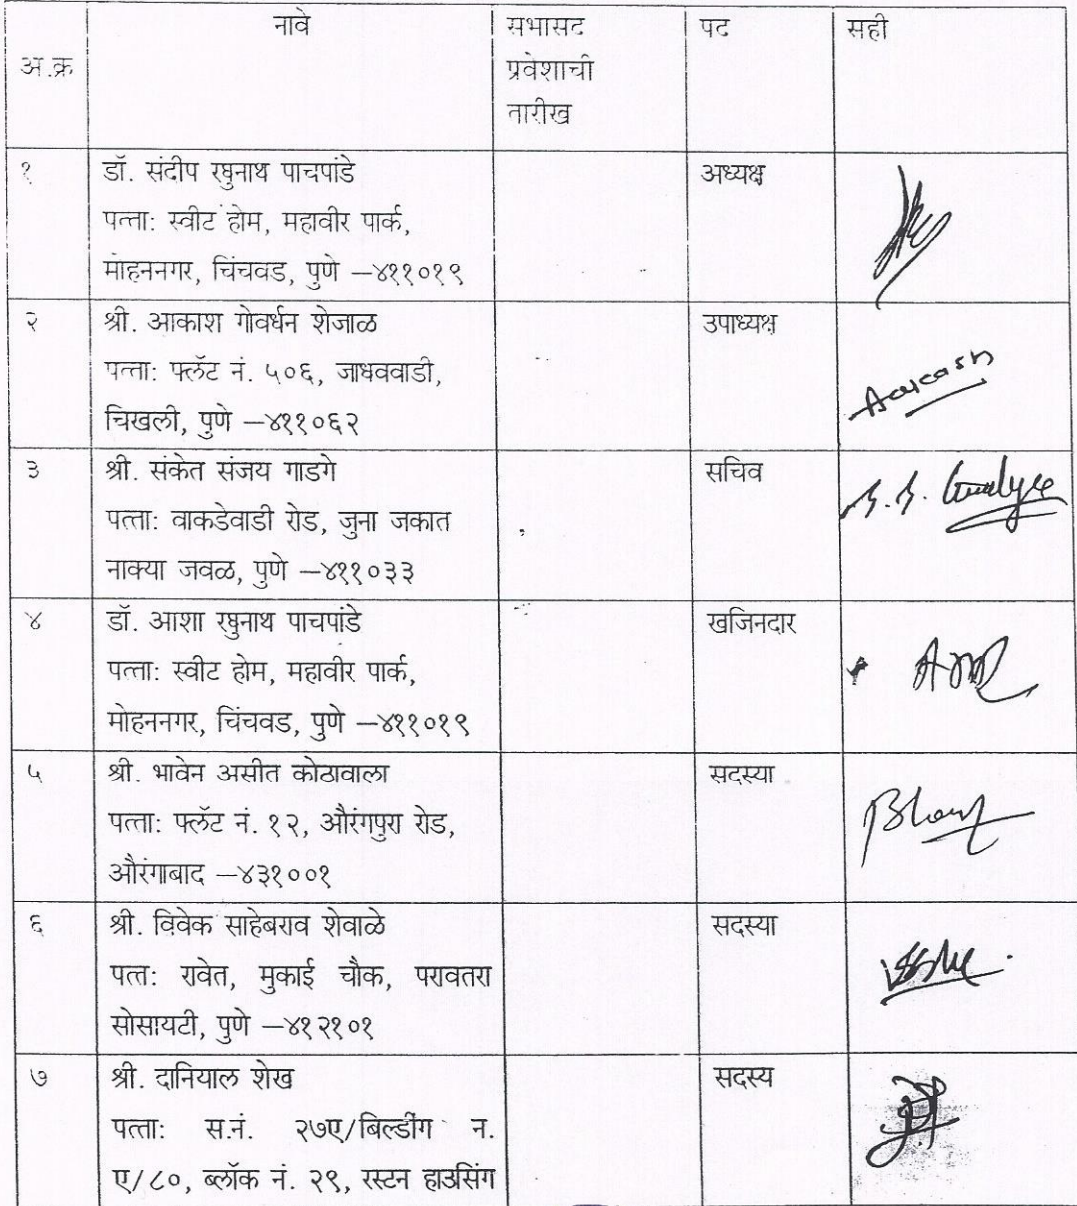 अ.क्र नावे सभासद प्रवेशाची तारीख पद सही
१ डॉ. संदीप रघुनाथ पाचपांडे अध्यक्ष
पत्ता: स्वीट होम, महावीर पार्क,
मोहननगर, चिंचवड, पुणे –४११०१९
२ श्री. आकाश गोवर्धन शेजाळ उपाध्यक्ष
पत्ता: फ्लॅट नं. ५०६, जाधववाडी,
चिखली, पुणे –४११०६२
Aakash
३ श्री. संकेत संजय गाडगे सचिव
पत्ता: वाकडेवाडी रोड, जुना जकात
नाक्या जवळ, पुणे –४११०३३
४ डॉ. आशा रघुनाथ पाचपांडे खजिनदार
पत्ता: स्वीट होम, महावीर पार्क,
मोहननगर, चिंचवड, पुणे –४११०१९
५ श्री. भावेन असीत कोठावाला सदस्या
पत्ता: फ्लॅट नं. १२, औरंगपुरा रोड,
औरंगाबाद –४३१००१
६ श्री. विवेक साहेबराव शेवाळे सदस्या
पत्त: रावेत, मुकाई चौक, परावतरा
सोसायटी, पुणे –४१२१०१
७ श्री. दानियाल शेख सदस्य
पत्ता: स.नं. २७ए/बिल्डींग न.
ए/८०, ब्लॉक नं. २९, रस्टन हाउसिंग